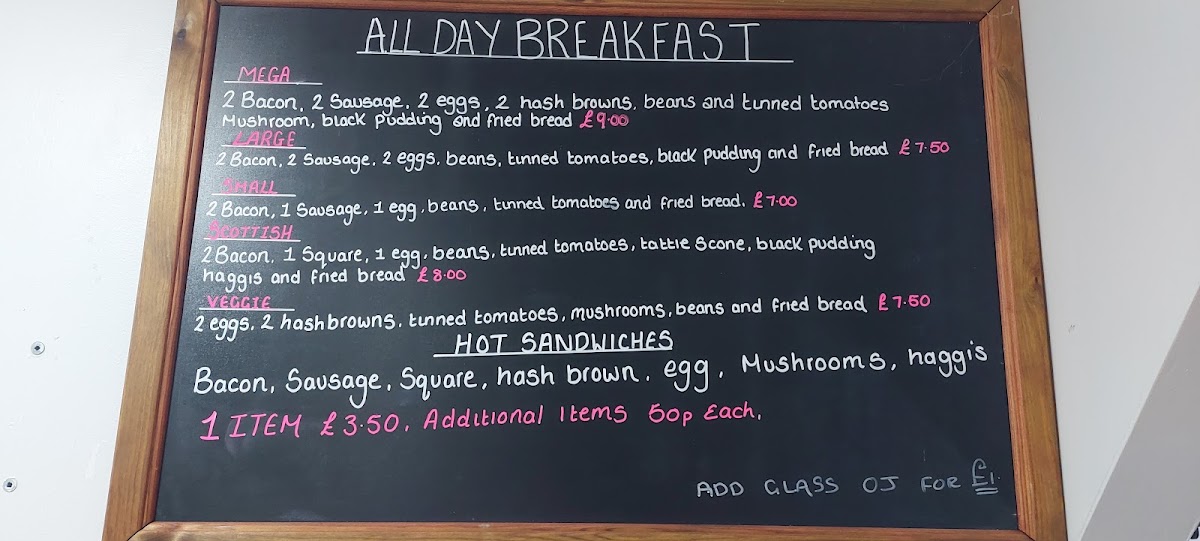 ALL DAY BREAKFAST
MEGA
2 Bacon, 2 Sausage, 2 eggs, 2 hash browns, beans and tinned tomatoes
Mushroom, black pudding and fried bread £9.00
LARGE
2 Bacon, 2 Sausage, 2 eggs, beans, tinned tomatoes, black pudding and fried bread £7.50
SMALL
2 Bacon, 1 Sausage, 1 egg, beans, tinned tomatoes and fried bread. £7.00
SCOTTISH
2 Bacon, 1 Square, 1 egg, beans, tinned tomatoes, tattie Scone, black pudding
haggis and fried bread £8.00
VEGGIE
2 eggs, 2 hash browns, tinned tomatoes, mushrooms, beans and fried bread £7.50
HOT SANDWICHES
Bacon, Sausage, Square, hash brown, egg, Mushrooms, haggis
1 ITEM £3.50, Additional Items 50p Each,
ADD GLASS OJ FOR £1.